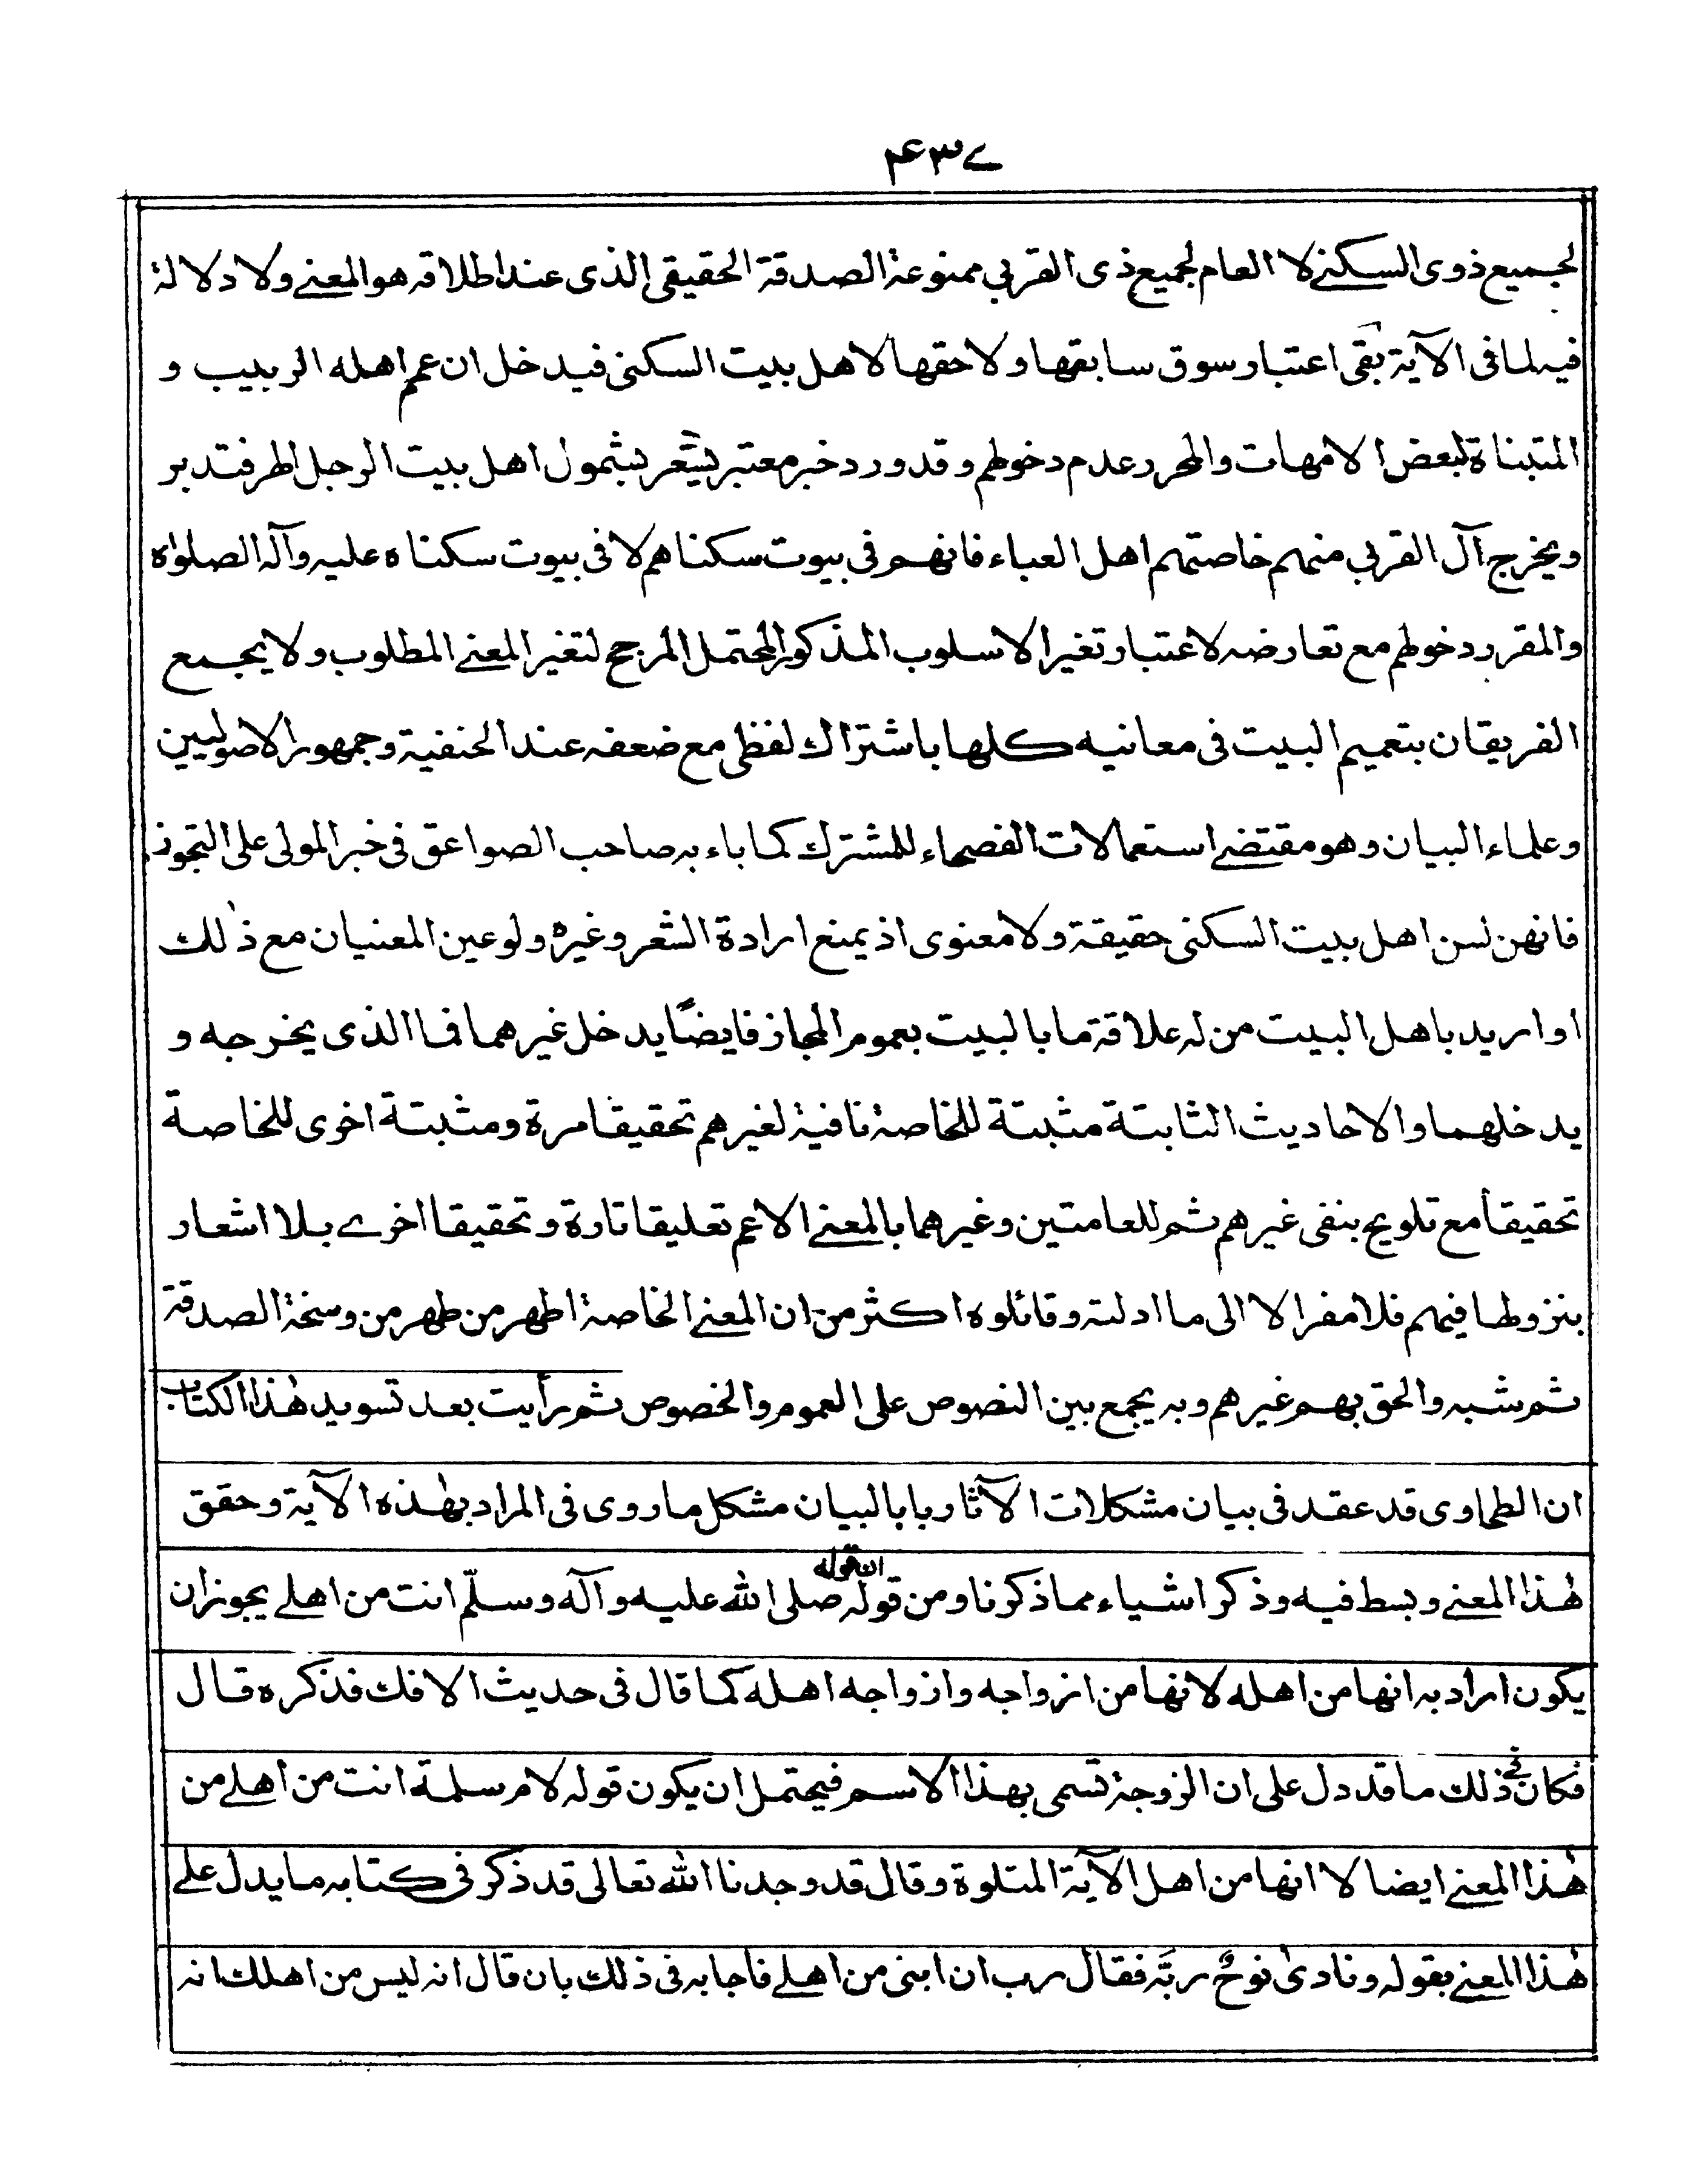 ۴۳۷
لجميع ذوى السكنے لا العام لجميع ذى القربي ممنوعة الصدقة الحقيقي الذى عند اطلاقه هو المعنے ولا دلالة
فيه لما فى الآية بقى اعتبار سوق سابقها ولاحقها لاهل بيت السكنى فيدخل ان عم اهله الربيب و
المتبناة لبعض الامهات والمحرر عدم دخولهم وقد ورد خبر معتبر يشعر بشمول اهل بيت الرجل لهم فتدبر
ويخرج آل القربي منهم خاصتهم اهل العباء فانهم فى بيوت سكناهم لا فى بيوت سكناه عليه وآله الصلواة
والمقرر دخولهم مع تعارضه لاعتبار تغير الاسلوب المذكور المحتمل المرجح لتغير المعنے المطلوب ولا يجمع
الفريقان بتعميم البيت فى معانيه كلها باشتراك لفظى مع ضعفه عند الحنفية وجمهور الاصوليين
وعلماء البيان وهو مقتضے استعمالات الفصحاء للمشترك كما باء به صاحب الصواعق فى خبر المولى على التجوز
فانهن لسن اهل بيت السكنى حقيقة ولا معنوى اذ يمنع ارادة الشعر وغيره ولو عين المعنيان مع ذلك
او اريد باهل البيت من له علاقة ما بالبيت بعموم المجاز فايضًا يدخل غيرهما فما الذى يخرجه و
يدخلهما والاحاديث الثابتة مثبتة للخاصة نافية لغيرهم تحقيقا مرة ومثبتة اخرى للخاصة
تحقيقا مع تلويح بنفى غيرهم ثم للعامتين وغيرهما بالمعنے الاعم تعليقا تارة وتحقيقا اخرے بلا اشعار
بنزولها فيهم فلا مفر الا الى ما ادلته وقائلوه اكثر من ان المعنے الخاصة اطهر من طهر من وسخة الصدقة
ثم شبه والحق بهم غيرهم وبه يجمع بين النصوص على العموم والخصوص ثم رأيت بعد تسويد هٰذا الكتاب
ان الطحاوى قد عقد فى بيان مشكلات الآثار بابا لبيان مشكل ما روى فى المراد بهٰذه الآية وحقق
هٰذا المعنے وبسط فيه وذكر اشياء مما ذكرنا ومن قوله ان قوله صلى الله عليه وآله وسلّم انت من اهلے يجوز ان
يكون اراد به انها من اهله لانها من ازواجه وازواجه اهله كما قال فى حديث الافك فذكره قال
فكان فى ذلك ما قد دل على ان الزوجة تسمى بهذا الاسم فيحتمل ان يكون قوله لام سلمة انت من اهلے من
هٰذا المعنے ايضا لا انها من اهل الآية المتلوة وقال قد وجدنا الله تعالى قد ذكر فى كتابه ما يدل علے
هٰذا المعنے بقوله ونادىٰ نوحٌ ربَّه فقال رب ان ابنى من اهلے فاجابه فى ذلك بان قال انه ليس من اهلك انه